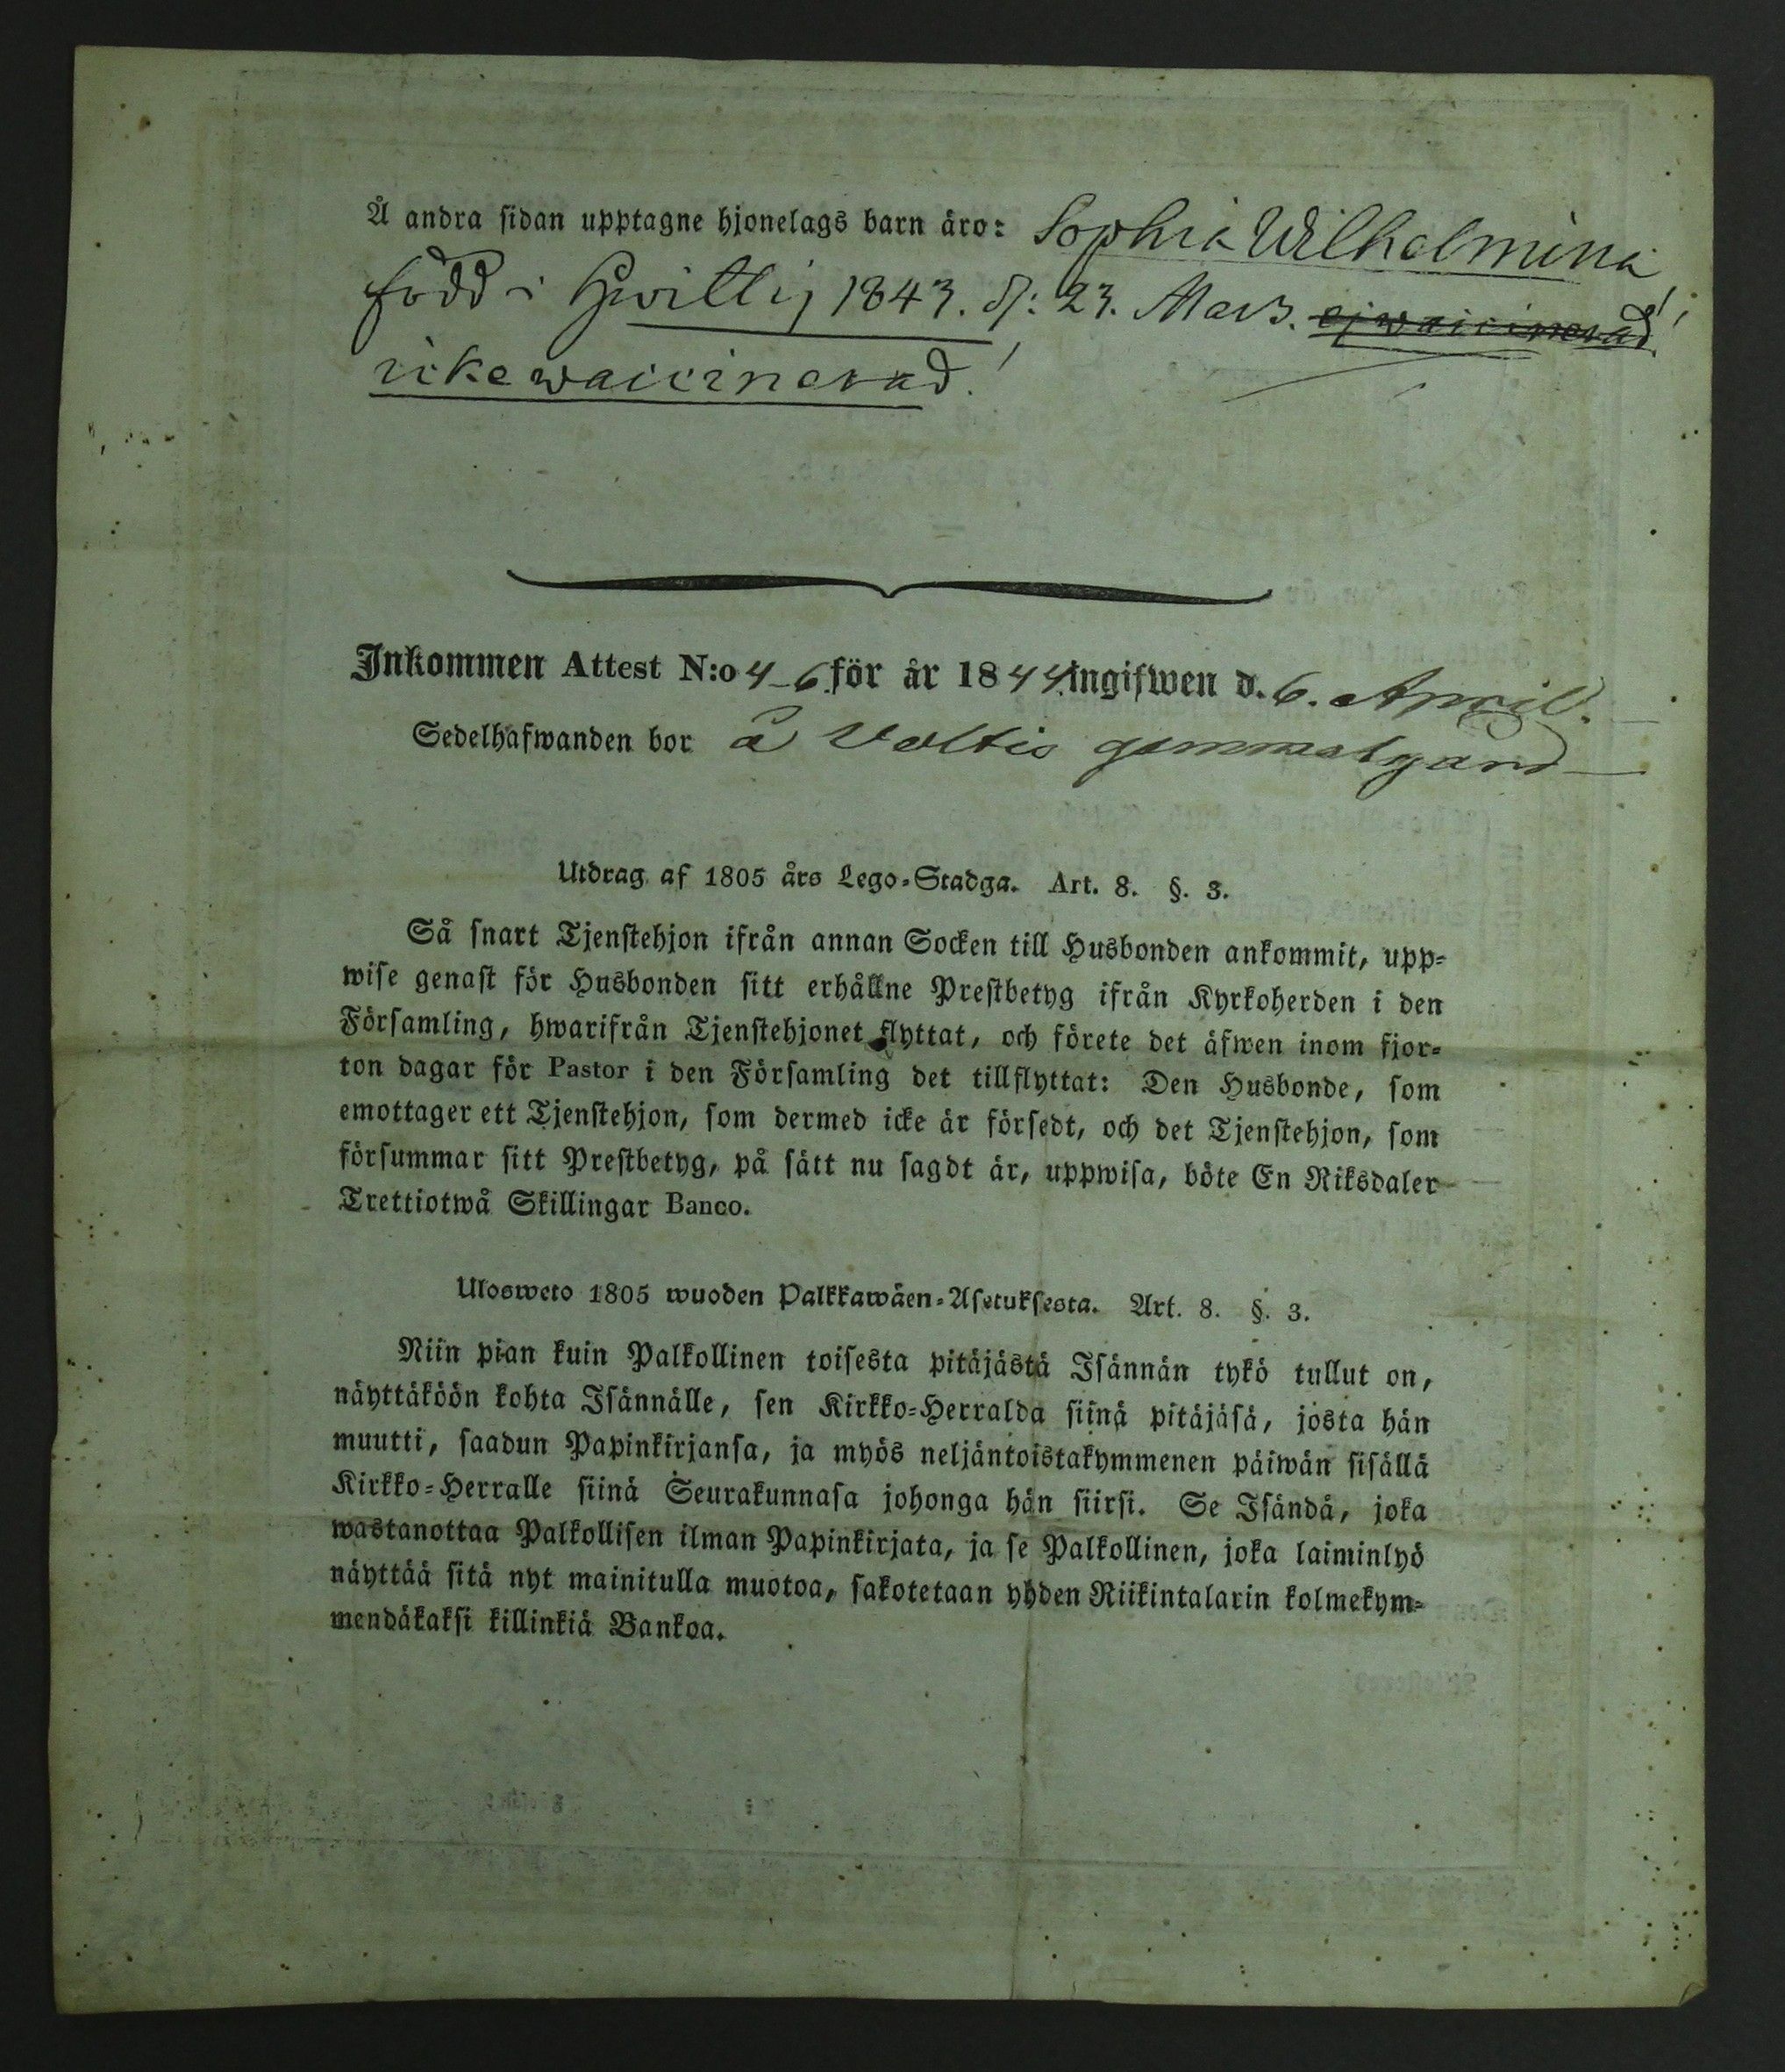 Å andra sidan upptagne hjonelags barn äro: Sophia Wilhelmina
född i Hwittis 1843. d: 23. Mars. ej waccinerad!
icke waccinerad!
Inkommen Attest N:o 4-6. för år 1844 ingifwen d. 6. April.
Sedelhafwanden bor å Voltis gammalgård
Utdrag af 1805 års Lego-Stadga. Art. 8. §. 3.
Så snart Tjenstehjon ifrån annan Socken till Husbonden ankommit, upp-
wise genast för Husbonden sitt erhållne Prestbetyg ifrån Kyrkoherden i den
Församling, hwarifrån Tjenstehjonet flyttat, och förete det äfwen inom fjor-
ton dagar för Pastor i den Församling det tillflyttat: Den Husbonde, som
emottager ett Tjenstehjon, som dermed icke är försedt, och det Tjenstehjon, som
försummar sitt Prestbetyg, på sätt nu sagdt är, uppwisa, böte En Riksdaler
Trettiotwå Skillingar Banco.
Ulosweto 1805 wuoden Palkkawäen-Asetuksesta. Art. 8. §. 3.
Niin pian kuin Palkollinen toisesta pitäjästä Isännän tykö tullut on,
näyttäköön kohta Isännälle, sen Kirkko-Herralda siinä pitäjäsä, josta hän
muutti, saadun Papinkirjansa, ja myös neljäntoistakymmenen päiwän sisällä
Kirkko-Herralle siinä Seurakunnasa johonga hän siirsi. Se Isändä, joka
wastanottaa Palkollisen ilman Papinkirjata, ja se Palkollinen, joka laiminlyö
näyttää sitä nyt mainitulla muotoa, sakotetaan yhden Riikintalarin kolmekym-
mendäkaksi killinkiä Bankoa.